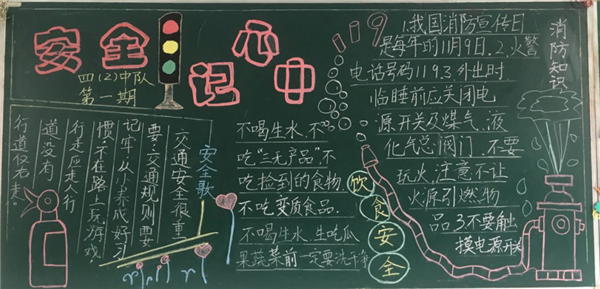 安全
记心中
四(2)中队
第一期
安全歌
交通安全很重
要,交通规则要
记牢,从小养成好习
惯,不在路上玩游戏
行走应走人行
道,没有
行道仅右走。
不喝生水,不
吃“三无产品”不
吃捡到的食物,
不吃变质食品,
不喝生水,生吃瓜
果蔬菜前一定要洗干净
饮食安全
119
1.我国消防宣传日
是每年的11月9日.2.火警
电话号码119 3.外出时
临睡前应关闭电
源开关及煤气、液
化气总阀门,不要
玩火,注意不让
火源引燃物
品3不要触
摸电源开关
消防知识